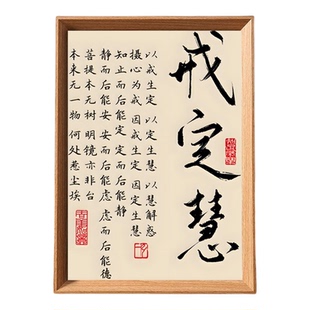 戒定慧
以戒生定 以定生慧 以慧解惑
摄心为戒 因戒生定 因定生慧
知止而后能定 定而后能静
静而后能安 安而后能虑 虑而后能德
菩提本无树 明镜亦非台
本来无一物 何处惹尘埃